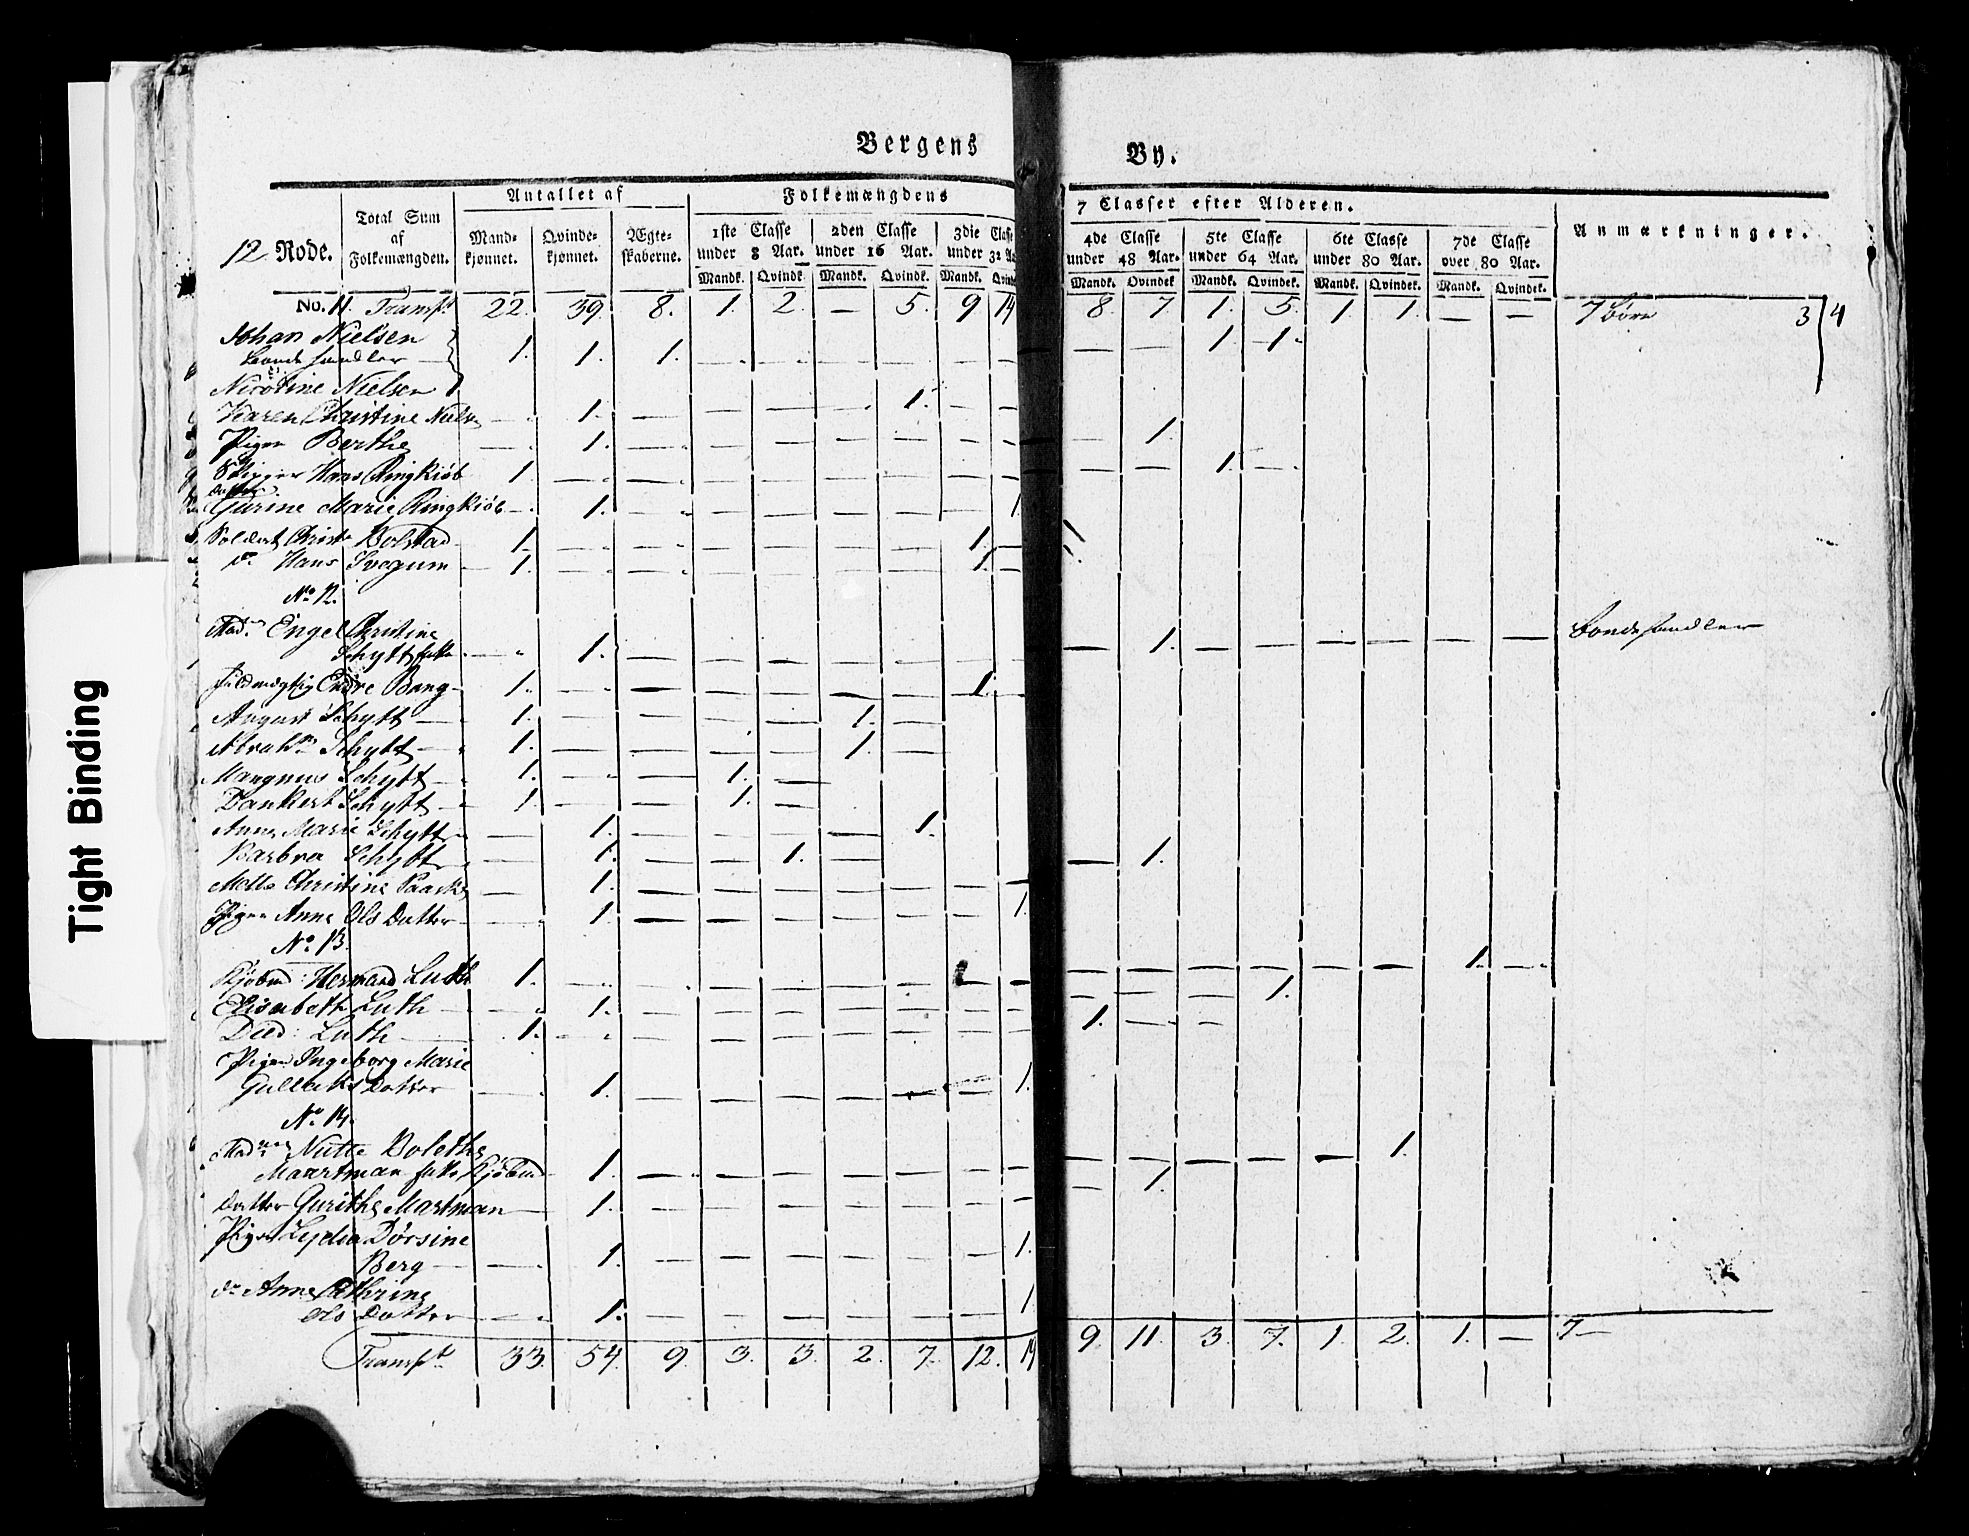 Tight Binding
Bergens By.
12 Rode.
Total Sum af Folkemængden.
Antallet af
Mandkjønnet. Qvindekjønnet. Ægteskaberne.
Folkemængdens 7 Classer efter Alderen.
1ste Classe under 8 Aar. 2den Classe under 16 Aar. 3die Classe under 32 Aar. 4de Classe under 48 Aar. 5te Classe under 64 Aar. 6te Classe under 80 Aar. 7de Classe over 80 Aar.
Mandk. Qvindk. Mandk. Qvindk. Mandk. Qvindk. Mandk. Qvindek Mandk. Qvindk. Mandk. Qvindek. Mandk. Qvindek.
Anmærkninger.
No. 11. Transpt 22. 39. 8. 1. 2. — 5. 9 14 8. 7. 1. 5. 1 1. — — 7 3/4
Johan Nielsen
Bondehandler 1. 1. 1. 1. 1.
Nicoline Nielsen
Karen Christine Niels 1. 1.
Pigen Berthe 1. 1.
Skipper Hans Ringkiøb 1. 1.
Datter
Gurine Marie Ringkiøb 1. 1.
Soldat Christ Bolstad 1. 1.
do Hans 1. 1.
No 12.
Mad. Engel Christine
Schytt 1. 1. Bondehandler
Fuldmægtig Endre Bang 1. 1.
August Schytt 1. 1.
Abrahm Schytt 1. 1.
Mangnus Schytt 1. 1.
Dankert Schytt 1 1.
Anne Marie Schytt 1. 1.
Barbra Schytt 1. 1.
Mette Christine 1. 1.
Pigen Anne Ols Datter 1. 1.
No 13.
Kjøbmd: Hermand Luth 1. 1.
Elisabeth Luth 1. 1.
Died: Luth 1. 1.
Pigen Ingeborg Marie
Gullaks Datter 1. 1.
No 14.
Mad. Bolethe
Maartman Kjøbmd 1. 1.
Datter Gurithe Martman 1. 1.
Pigen Lydia Dorsine
Berg 1. 1.
do Anne Cathrine
Ols Datter 1. 1
Transpt 33. 54. 9. 3. 3. 2. 7. 12. 19 9. 11. 3. 7. 1. 2. 1. — 7—